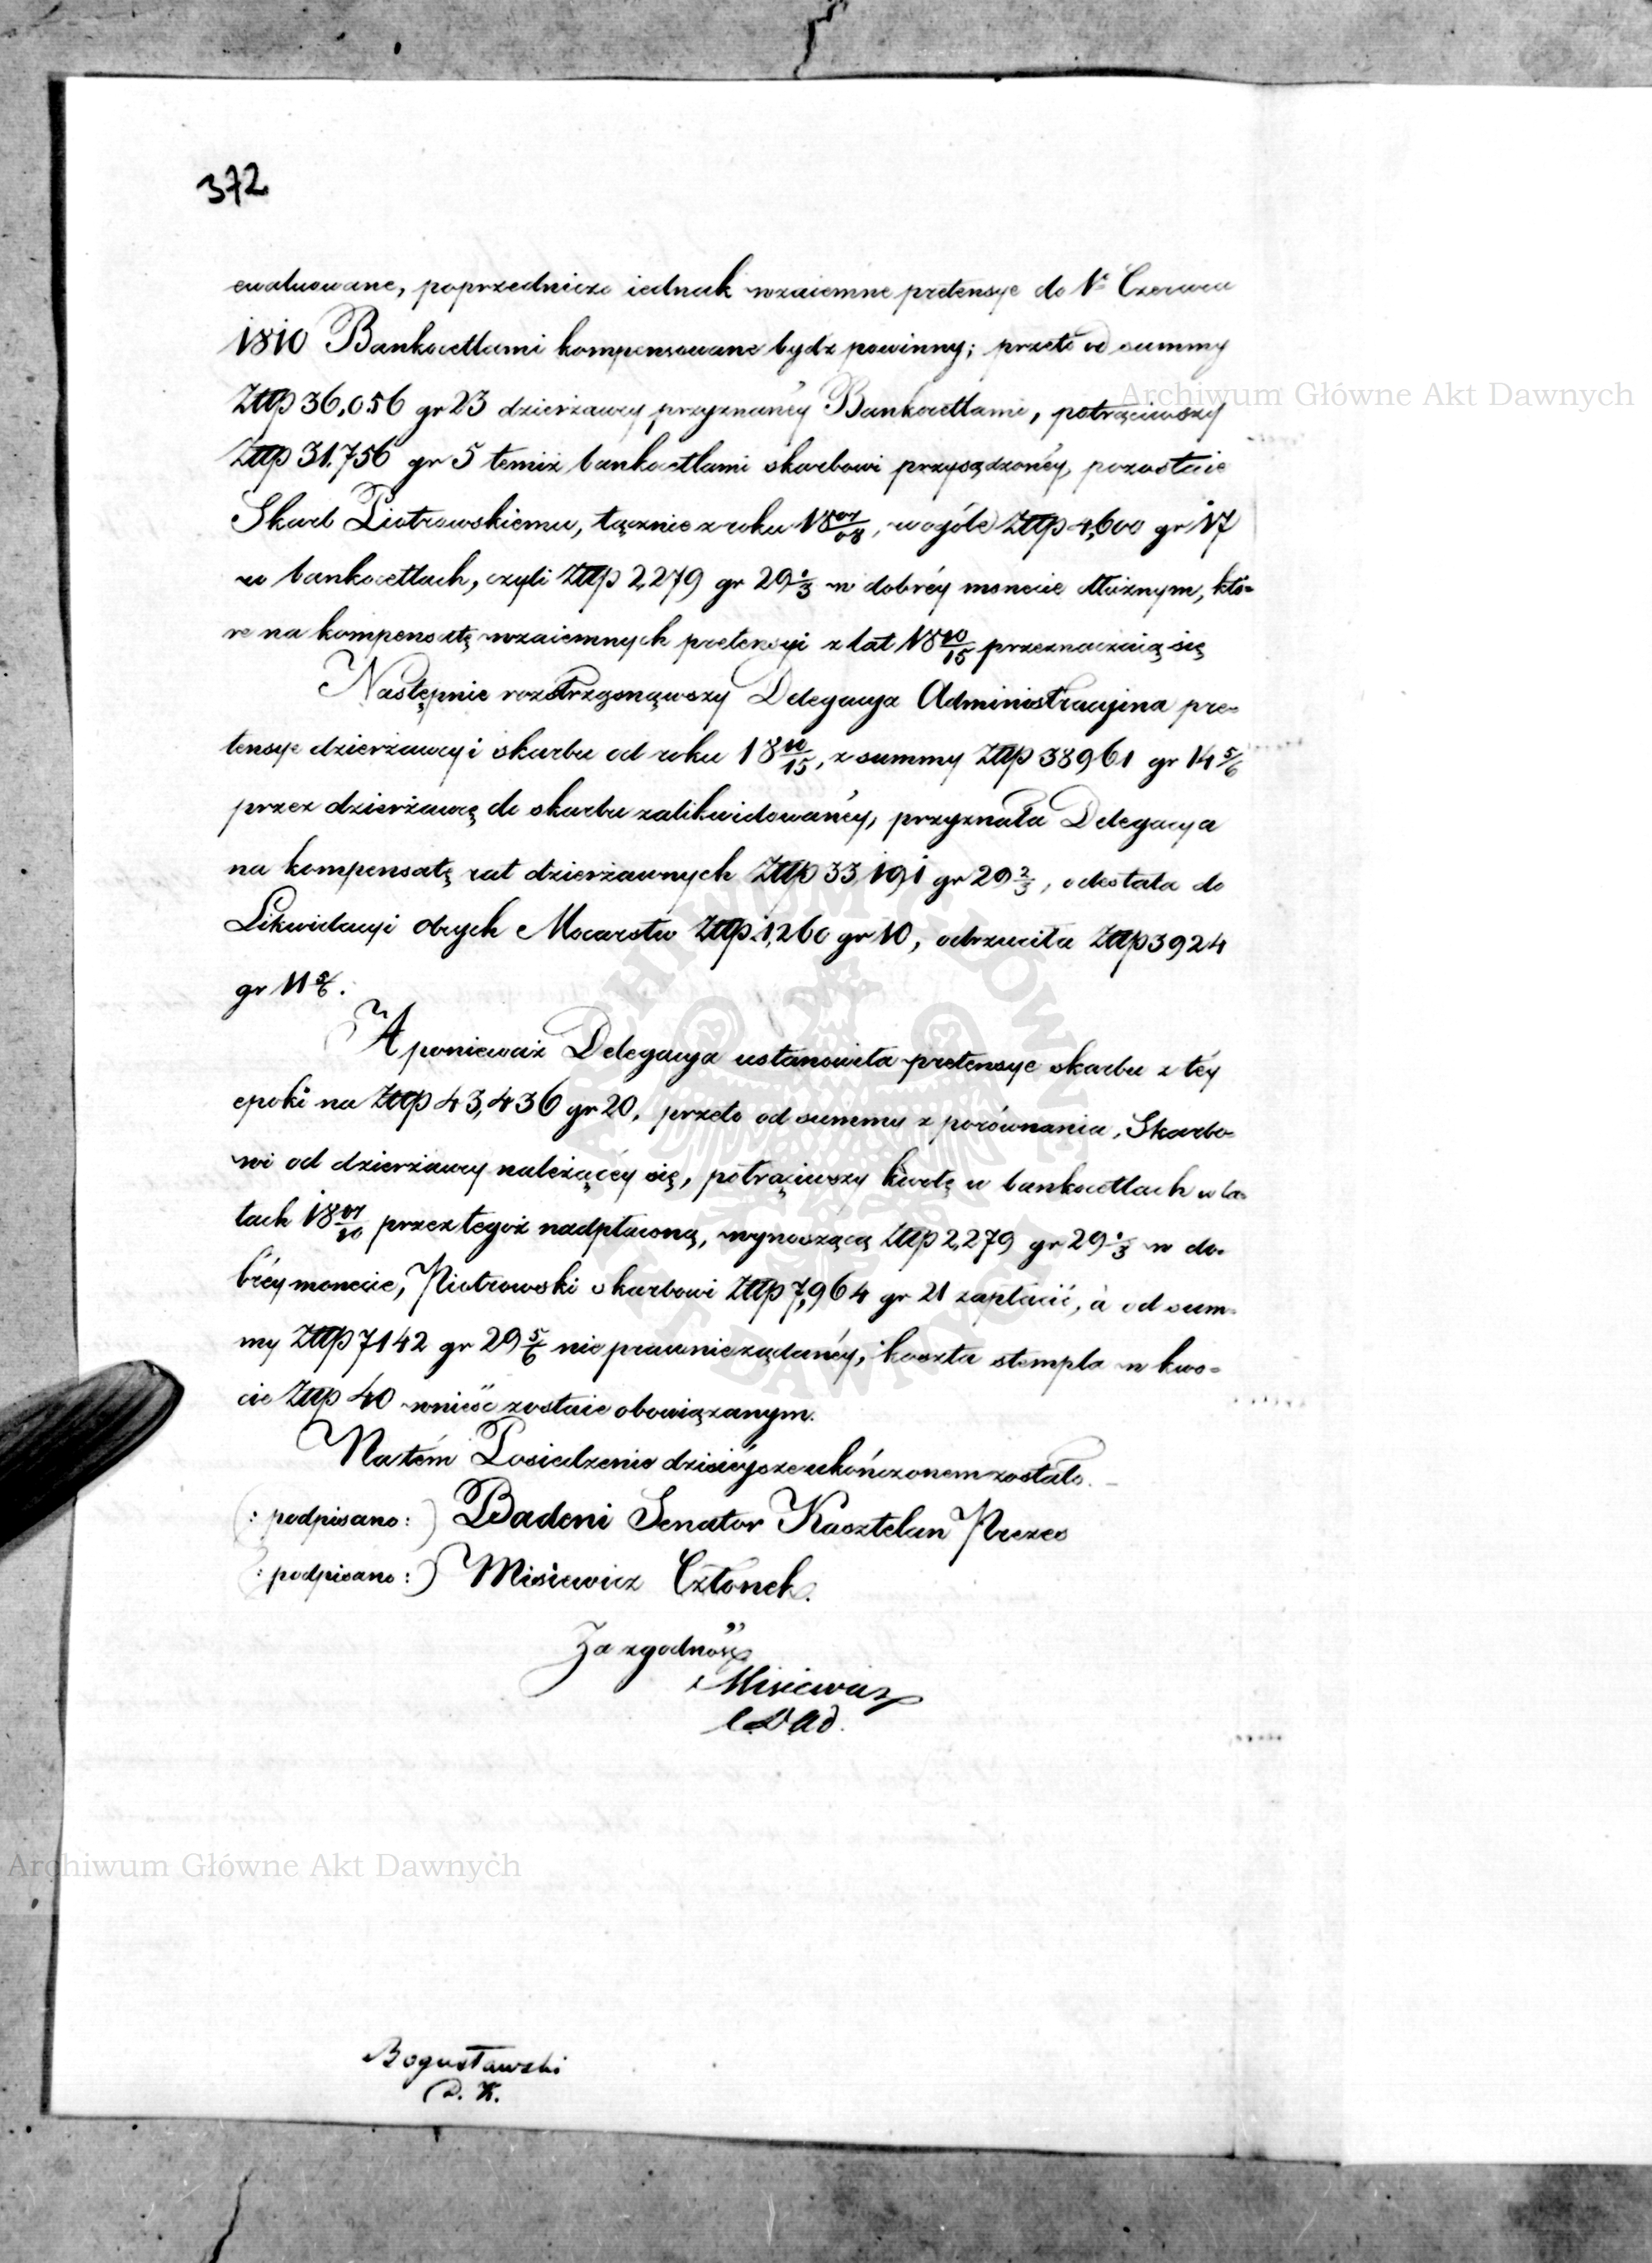 372
ewaluowane, poprzedniczo iednak wzaiemne pretensye do 1º Czerwca
1810 Bankocetlami kompensowane bydz powinny; przeto od summy
Złłp 36,056 gr 23 dzierżawcy przyznanéy Bankocetlami, potrąciwszy
Złłp 31,756 gr 5 temiż bankocetlami skarbowi przysądzonéy, pozostaie
Skarb Piotrowskiemu, łącznie z roku 18 07/08, w ogóle Złłp 4,600 gr 17
w bankocetlach, czyli Złłp 2,279 gr 29 1/3 w dobréy monecie dłużnym, któ=
re na kompensatę wzaiemnych pretensyi z lat 18 10/15 przeznaczaią się
Następnie rozstrzygnąwszy Delegacya Administracyina pre=
tensye dzierżawcy i skarbu od roku 18 10/15, z summy Złłp 38961 gr 14 5/6
przez dzierżawcę do skarbu zalikwidowanéy, przyznała Delegacya
na kompensatę rat dzierżawnych Złłp 33,191 gr 29 2/3, odesłała do
Likwidacyi obcych Mocarstw Złłp 1,260 gr 10, odrzuciła Złłp 3924
gr 11 5/6.
A ponieważ Delegacya ustanowiła pretensye skarbu z téy
epoki na Złłp 43,436 gr 20, przeto od summy z porównania, Skarbo=
wi od dzierżawcy należącéy się, potrąciwszy kwotę w bankocetlach w la=
tach 18 07/10 przez tegoż nadpłaconą, wynoszącą Złłp 2,279 gr 29 1/3 w do=
bréy monecie, Piotrowski skarbowi Złłp 7,964 gr 21 zapłacić, a od sum=
my Złłp 7142 gr 29 5/6 nie prawnie żądanéy, koszta stempla w kwo=
cie Złłp 40 wnieść zostaie obowiązanym.
Na tém Posiedzenie dzisieysze ukończonem zostało.
(: podpisano :) Badeni Senator Kasztelan Prezes
(: podpisano :) Misiewicz Członek.
Za zgodność
Misiewicz
C D Ad.
Bogusławski
Archiwum Główne Akt Dawnych
Archiwum Główne Akt Dawnych
ARCHIWUM GŁÓWNE AKT DAWNYCH